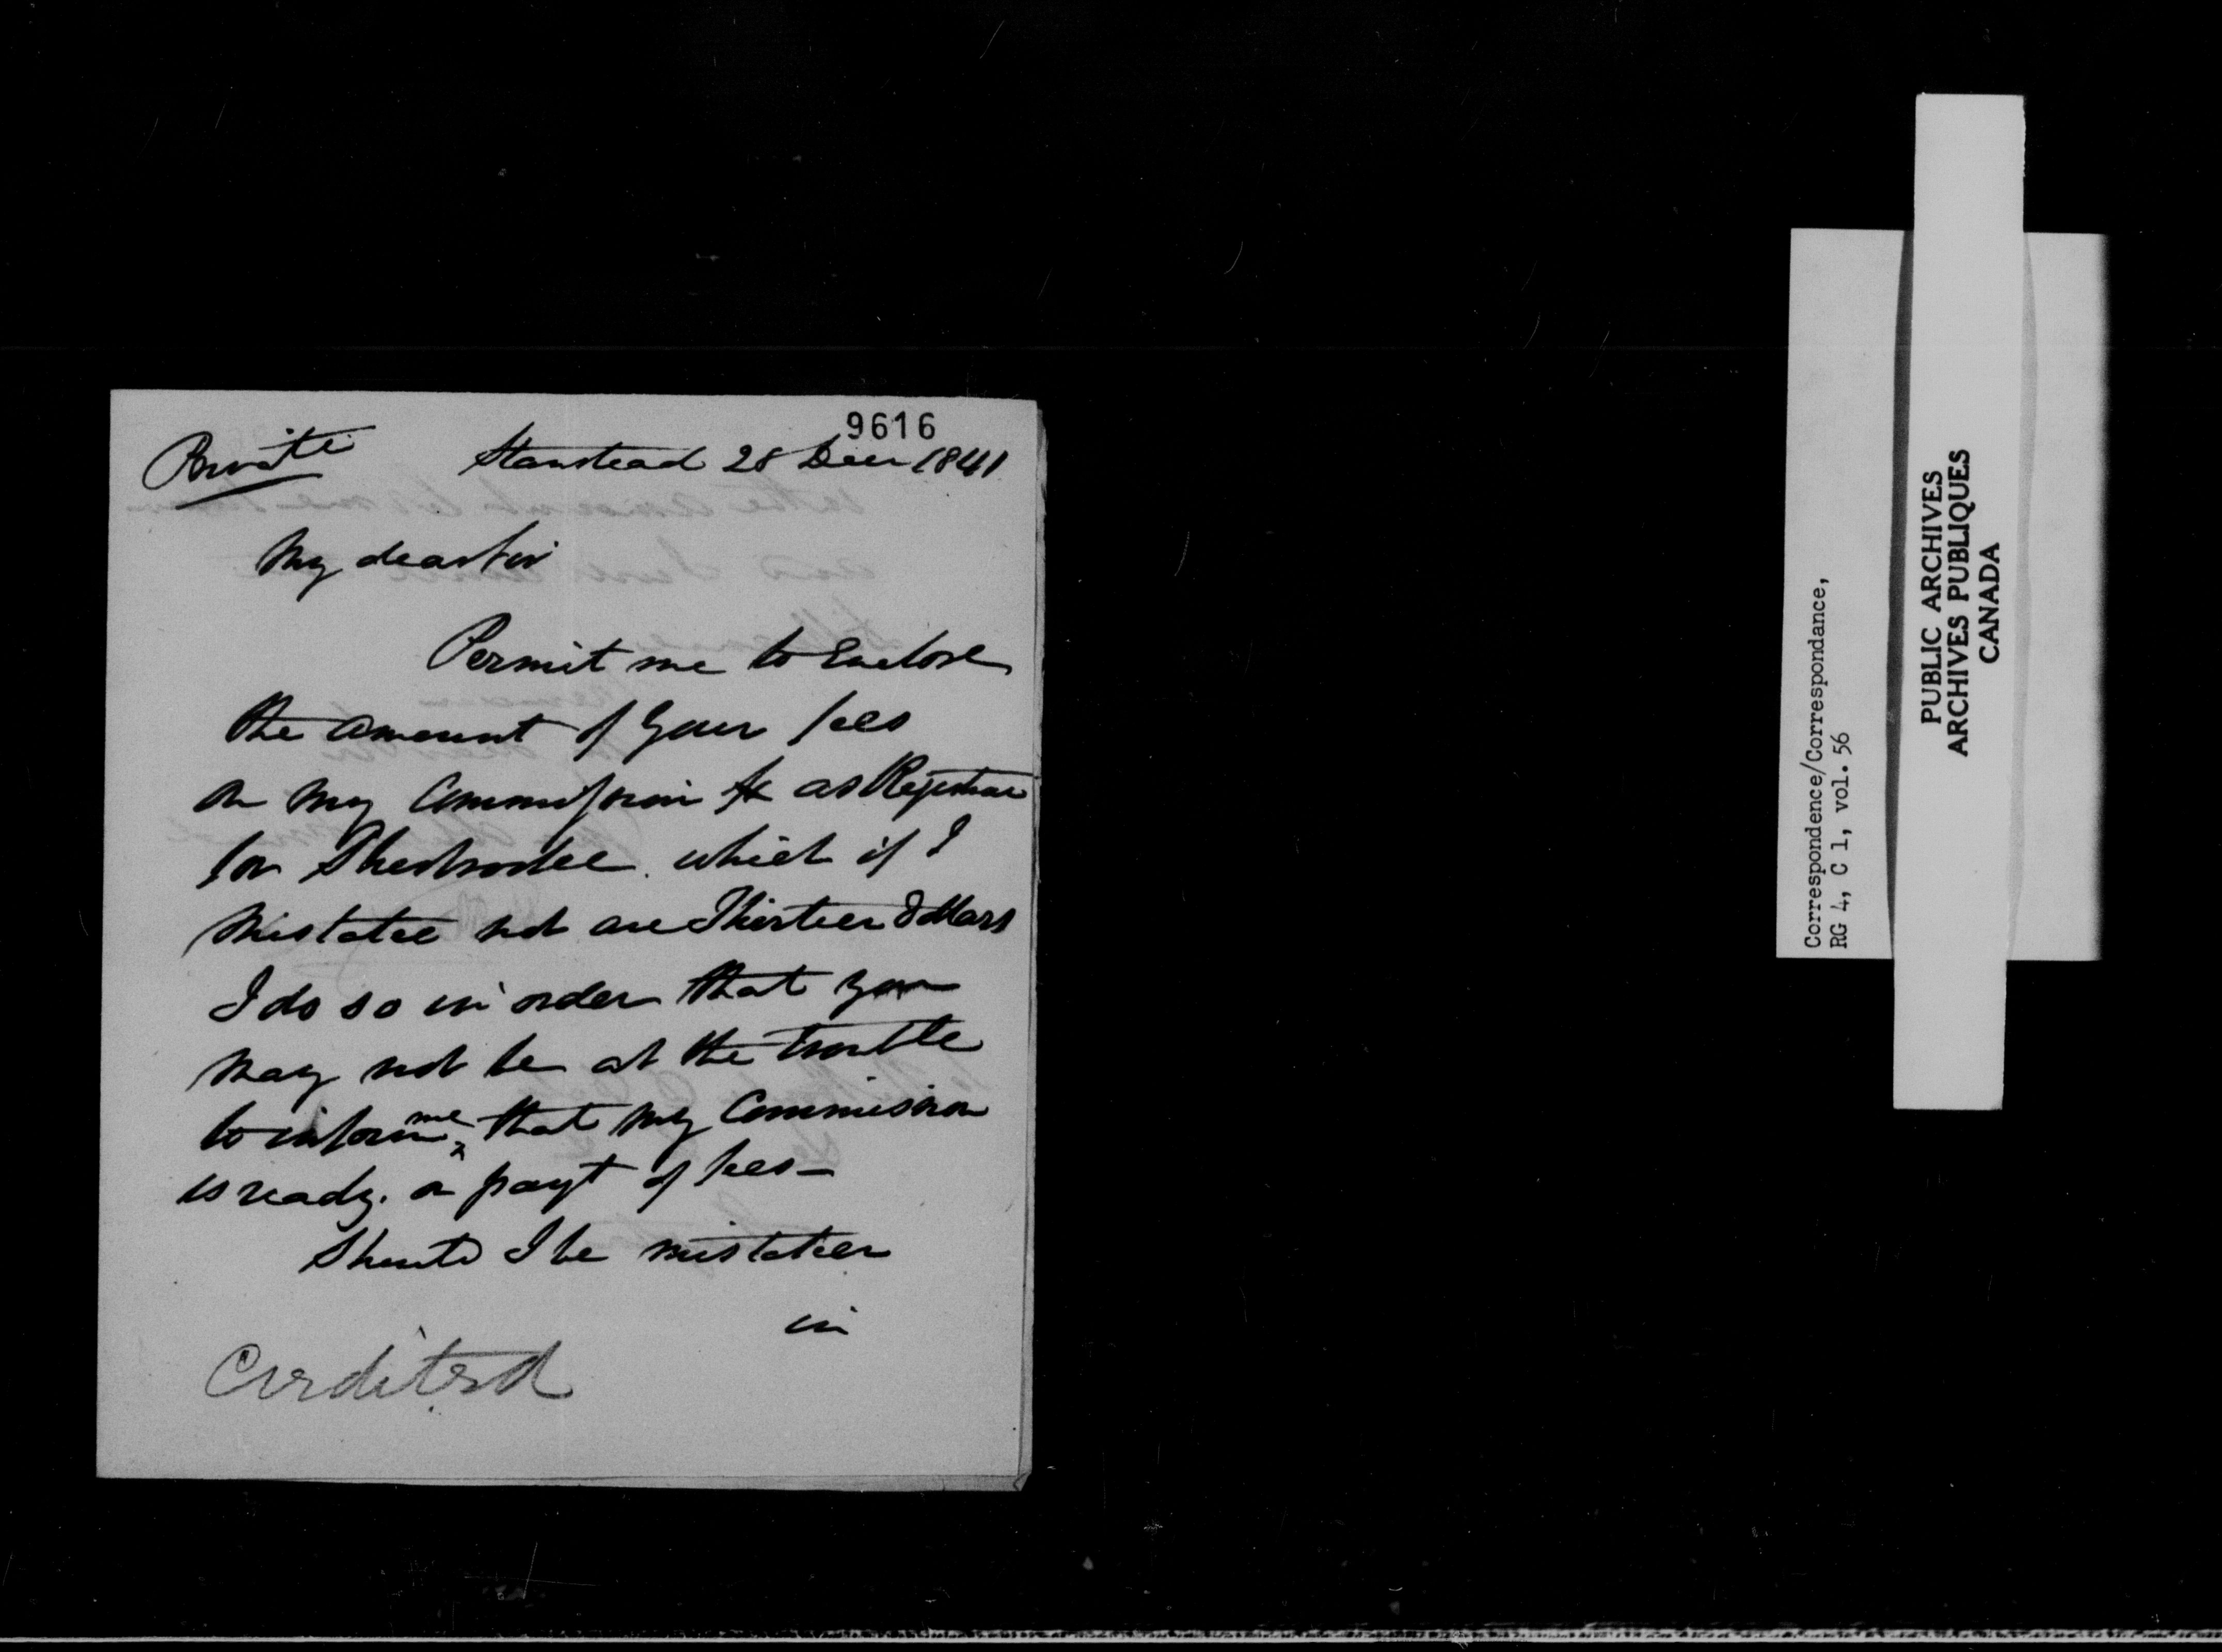 9616
Private Stanstead 28 Decr 1841
My dear Sir
Permit me to Enclose
the amount of your fees
on my Commission &c as Registrar
for Sherbrooke which if I
mistake not are Thirteen Dollars
I do so in order that you
may not be at the trouble
to inform me that my Commission
is ready. on payt of fees—
Should I be mistaken
in
Credited
Correspondence/Correspondance,
RG 4, C 1, vol. 56
PUBLIC ARCHIVES
ARCHIVES PUBLIQUES
CANADA